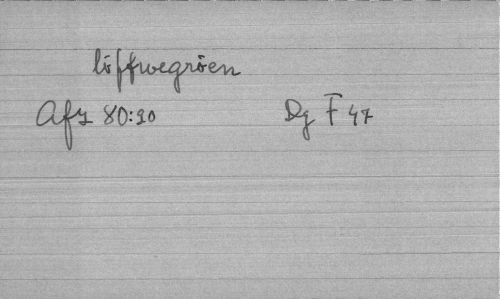 löffwegröen
Af1 80:20 Dg F 47